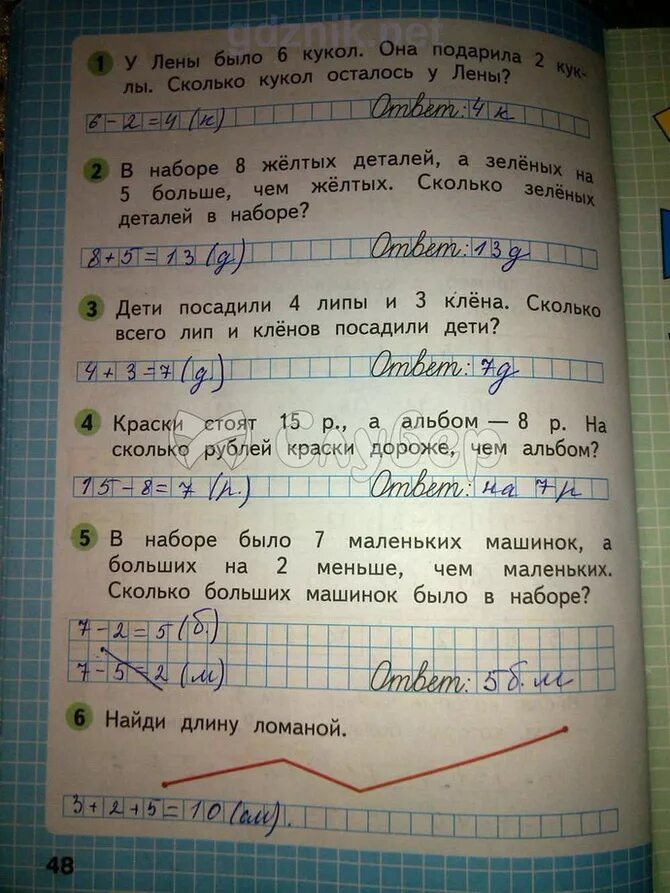 gdznik.net
1 У Лены было 6 кукол. Она подарила 2 кук-
лы. Сколько кукол осталось у Лены?
6-2=4(к) Ответ: 4 к
2 В наборе 8 жёлтых деталей, а зелёных на
5 больше, чем жёлтых. Сколько зелёных
деталей в наборе?
8+5=13(д) Ответ: 13д
3 Дети посадили 4 липы и 3 клёна. Сколько
всего лип и клёнов посадили дети?
4+3=7(д) Ответ: 7д
4 Краски стоят 15 р., а альбом — 8 р. На
сколько рублей краски дороже, чем альбом?
15-8=7(р.) Ответ: на 7р
5 В наборе было 7 маленьких машинок, а
больших на 2 меньше, чем маленьких.
Сколько больших машинок было в наборе?
7-2=5(б.)
7-5=2(м) Ответ: 5б.м
6 Найди длину ломаной.
3+2+5=10(см).
48